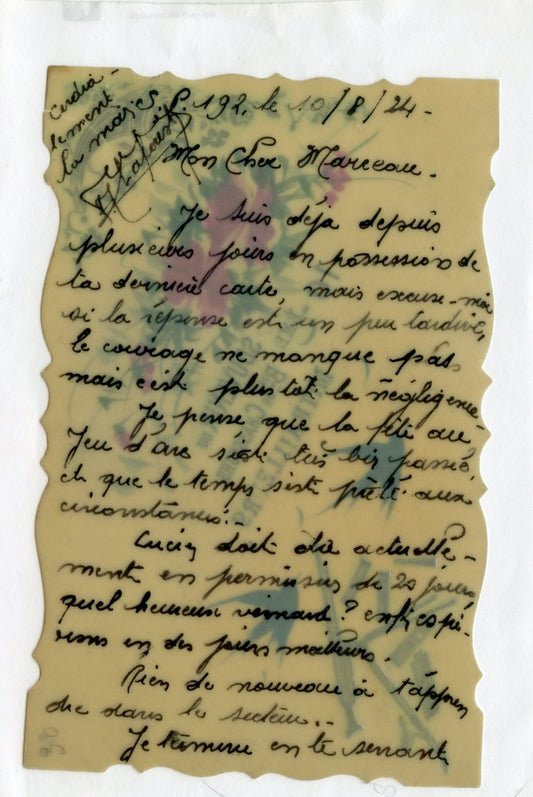 S. 192, le 10/8/24-
Mon Cher Marceau.
Je suis déja depuis
plusieurs jours en possession de
ta dernière carte, mais excuse-moi
si la réponse est un peu tardive,
le courage ne manque pas,
mais c'est plustôt la négligence-
Je pense que la fête au
Jeu d'arc s'est très bien passée,
et que le temps s'est prêté aux
circonstances.-
Lucien doit être actuelle-
ment en permission de 20 jours
quel heureux veinard? enfin espé-
rons en des jours meilleurs.
Rien de nouveau à t'appren
dre dans le secteur.-
Je termine en te serrant
cordia-
lement
la main